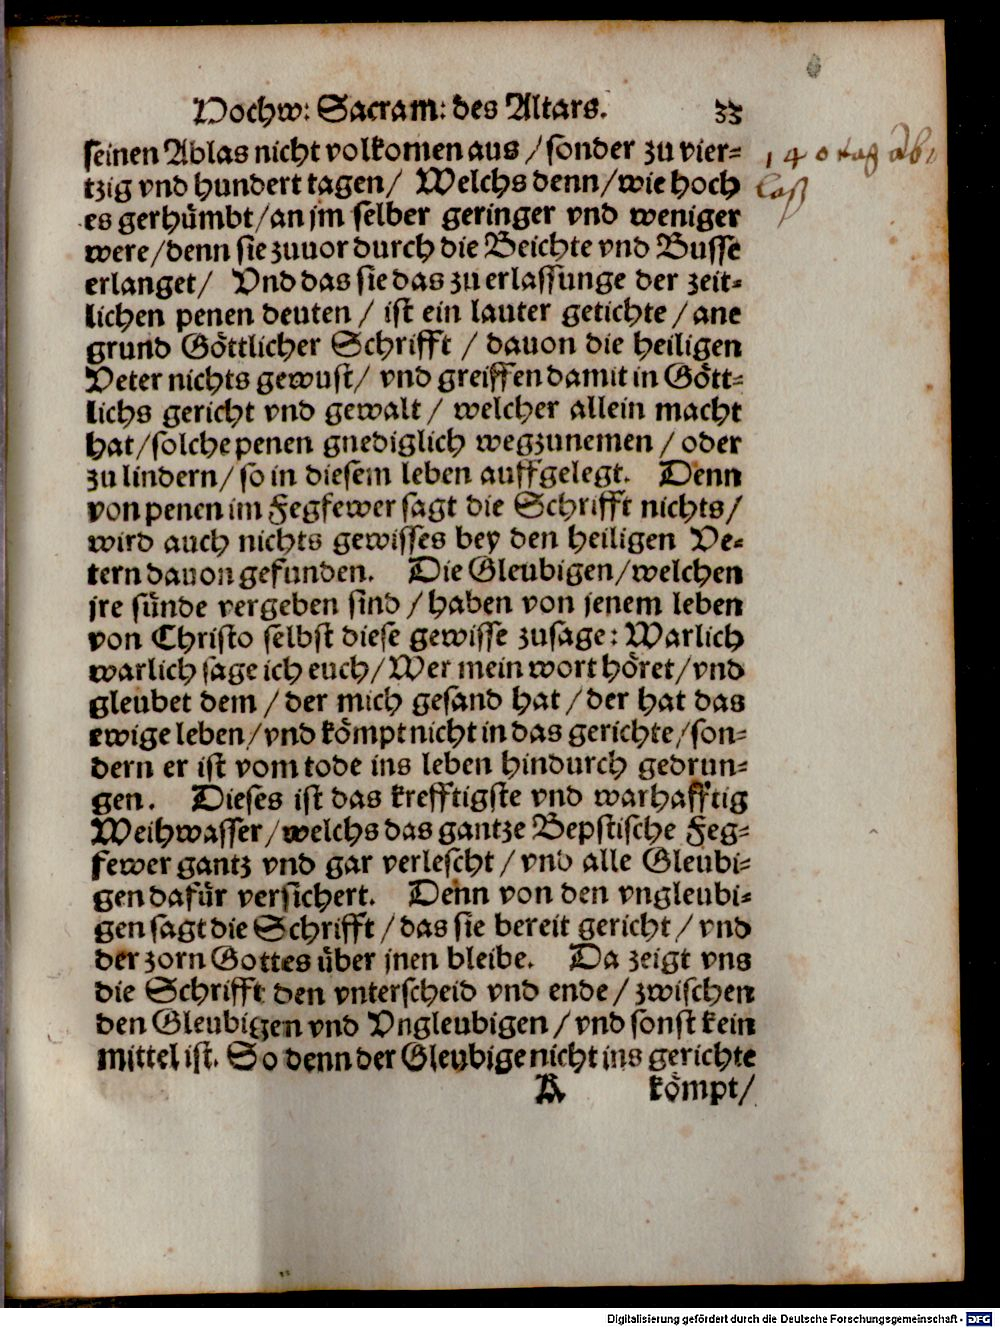 Vochw: Sacram: des Altars. 33
seinen Ablas nicht volkomen aus / sonder zu vier=
tzig vnd hundert tagen / Welchs denn / wie hoch
es gerhümbt / an jm selber geringer vnd weniger
were / denn sie zuuor durch die Beichte vnd Busse
erlanget / Vnd das sie das zu erlassunge der zeit=
lichen penen deuten / ist ein lauter getichte / ane
grund Göttlicher Schrifft / dauon die heiligen
Veter nichts gewust / vnd greiffen damit in Gött=
lichs gericht vnd gewalt / welcher allein macht
hat / solche penen gnediglich wegzunemen / oder
zu lindern / so in diesem leben auffgelegt. Denn
von penen im Fegfewer sagt die Schrifft nichts /
wird auch nichts gewisses bey den heiligen Ve=
tern dauon gefunden. Die Gleubigen / welchen
jre sünde vergeben sind / haben von jenem leben
von Christo selbst diese gewisse zusage: Warlich
warlich sage ich euch / Wer mein wort höret / vnd
gleubet dem / der mich gesand hat / der hat das
ewige leben / vnd kömpt nicht in das gerichte / son=
dern er ist vom tode ins leben hindurch gedrun=
gen. Dieses ist das krefftigste vnd warhafftig
Weihwasser / welchs das gantze Bepstische Feg=
fewer gantz vnd gar verlescht / vnd alle Gleubi=
gen dafür versichert. Denn von den vngleubi=
gen sagt die Schrifft / das sie bereit gericht / vnd
der zorn Gottes über jnen bleibe. Da zeigt vns
die Schrifft den vnterscheid vnd ende / zwischen
den Gleubigen vnd Vngleubigen / vnd sonst kein
mittel ist. So denn der Gleubige nicht ins gerichte
K kömpt /
140 tag Ab
laß
Digitalisierung gefördert durch die Deutsche Forschungsgemeinschaft - DFG